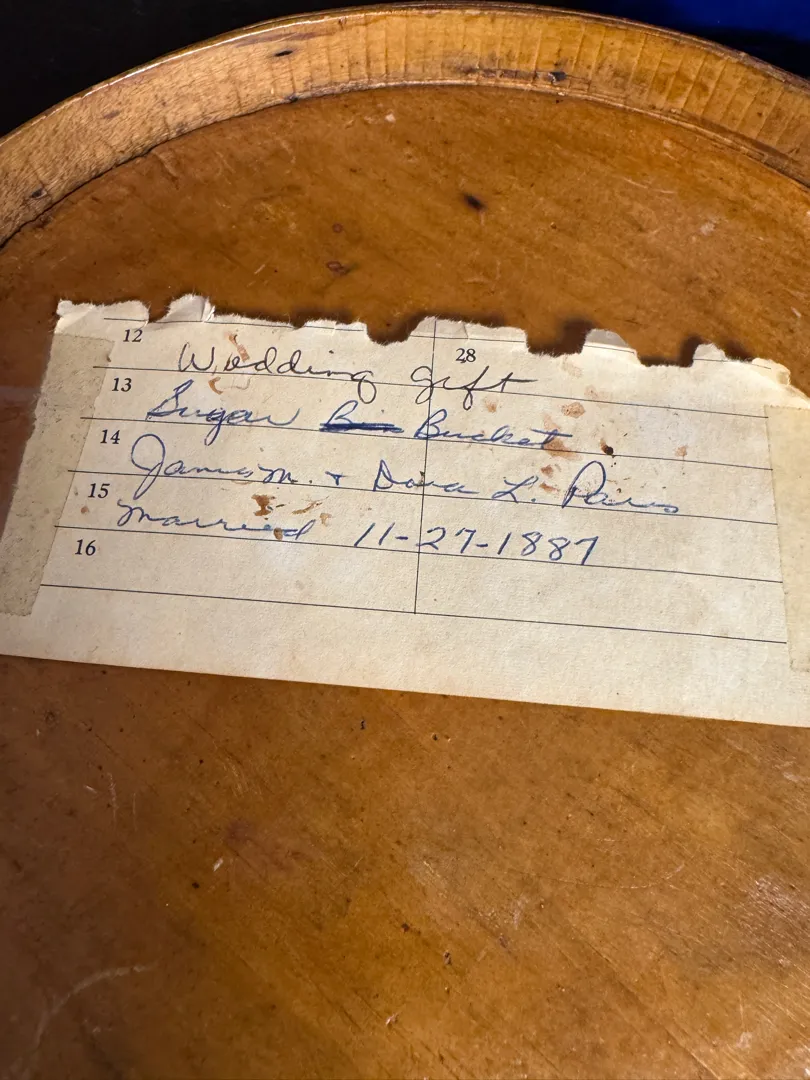 12 28
Wedding gift
13
Sugar Bucket
14
James M. + Dora L. Paris
15
Married 11-27-1887
16